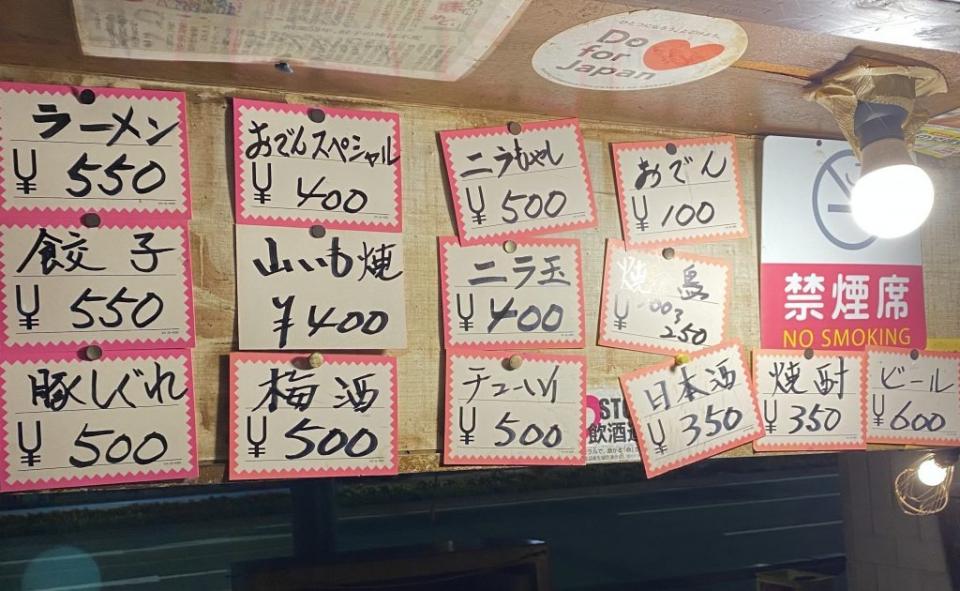 Do
for
Japan
ラーメン
¥550
おでんスペシャル
¥400
ニラもやし
¥500
おでん
¥100
餃子
¥550
山いも焼
¥400
ニラ玉
¥400
焼鳥
250
禁煙席
NO SMOKING
豚しぐれ
¥500
梅酒
¥500
チューハイ
¥500
日本酒
¥350
焼酎
¥350
ビール
¥600
飲酒